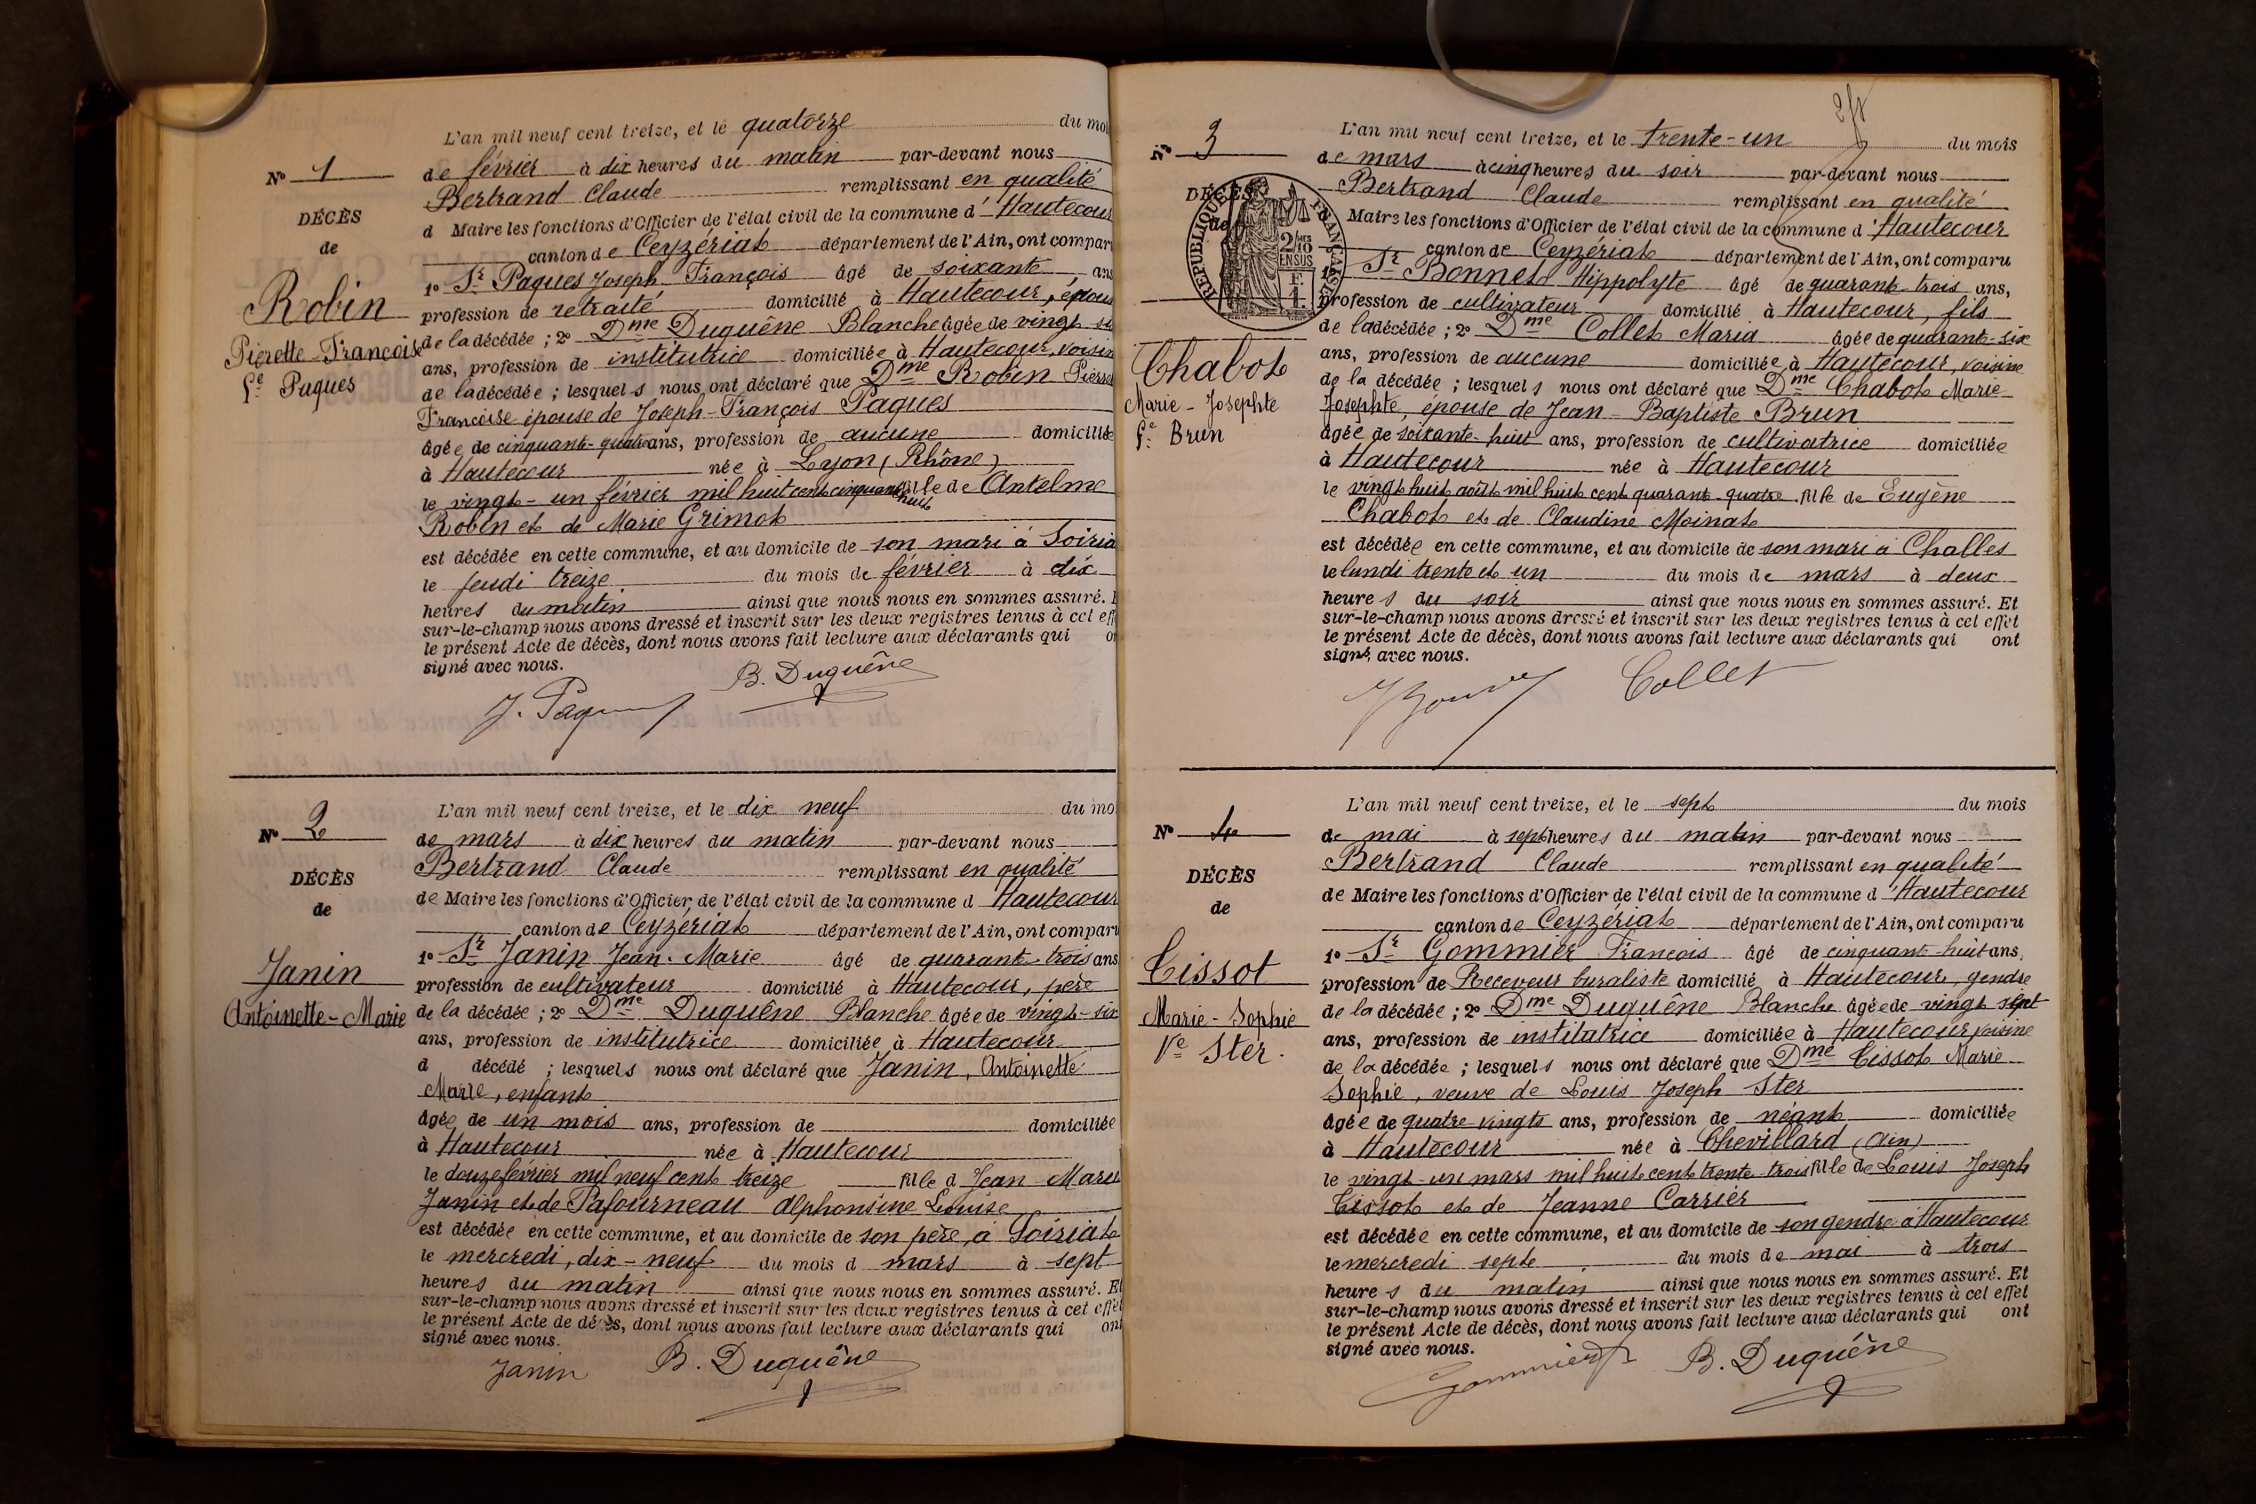 L'an mil neuf cent treize, et le quatorze du moi
N° 1
de février à dix heures du matin par-devant nous
Bertrand Claude remplissant en qualité
DÉCÈS
d Maire les fonctions d'Officier de l'état civil de la commune d'Hautecour
de
canton de Ceyzériat département de l'Ain, ont compar
1° Sr Paques Joseph François âgé de soixante ans
Robin
profession de retraité domicilié à Hautecour, époux
Pierette-Françoise
de la décédée ; 2° Dme Duquêne Blanche âgée de vingt six
ans, profession de institutrice domiciliée à Hautecour, voisin
Fe Paques
de la décédée ; lesquels nous ont déclaré que Dme Robin Pierret
Françoise épouse de Joseph-François Paques
âgée de cinquante-quatre ans, profession de aucune domiciliée
à Hautecour née à Lyon (Rhône)
le vingt-un février mil huit cent cinquante huit fille de Antelme
Robin et de Marie Grimot
est décédée en cette commune, et au domicile de son mari à Soiria
le jeudi treize du mois de février à dix
heures du matin ainsi que nous nous en sommes assuré. E
sur-le-champ nous avons dressé et inscrit sur les deux registres tenus à cet eff
le présent Acte de décès, dont nous avons fait lecture aux déclarants qui on
signé avec nous.
B. Duquêne
J. Paques
L'an mil neuf cent treize, et le dix neuf du mo
N° 2
de mars à dix heures du matin par-devant nous
Bertrand Claude remplissant en qualité
DÉCÈS
de Maire les fonctions d'Officier de l'état civil de la commune d Hautecour
de
canton de Ceyzériat département de l'Ain, ont comparu
1° Sr Janin Jean-Marie âgé de quarante-trois ans
Janin
profession de cultivateur domicilié à Hautecour, père
Antoinette-Marie
de la décédée ; 2° Dme Duquêne Blanche âgée de vingt-six
ans, profession de institutrice domiciliée à Hautecour
d décédé ; lesquels nous ont déclaré que Janin, Antoinette
Marie, enfant
âgée de un mois ans, profession de domiciliée
à Hautecour née à Hautecour
le douze février mil neuf cent treize fille d Jean-Marie
Janin et de Pafourneau Alphonsine Louise
est décédée en cette commune, et au domicile de son père, à Soiriat
le mercredi, dix-neuf du mois d mars à sept
heures du matin ainsi que nous nous en sommes assuré. Et
sur-le-champ nous avons dressé et inscrit sur les deux registres tenus à cet effet
le présent Acte de décès, dont nous avons fait lecture aux déclarants qui ont
signé avec nous.
Janin B. Duquêne
L'an mil neuf cent treize, et le trente-un du mois
N° 3
de mars à cinq heures du soir par-devant nous
DÉCÈS
Bertrand Claude remplissant en qualité
de
Maire les fonctions d'Officier de l'état civil de la commune d'Hautecour
RÉPUBLIQUE FRANÇAISE
2/10 EN SUS
canton de Ceyzériat département de l'Ain, ont comparu
1° Sr Bonnet Hippolyte âgé de quarante-trois ans,
profession de cultivateur domicilié à Hautecour, fils
de la décédée ; 2° Dme Collet Maria âgée de quarante-six
Chabot
ans, profession de aucune domiciliée à Hautecour, voisine
Marie-Josephte
de la décédée ; lesquels nous ont déclaré que Dme Chabot Marie
Josephte, épouse de Jean-Baptiste Brun
Fe Brun
âgée de soixante-huit ans, profession de cultivatrice domiciliée
à Hautecour née à Hautecour
le vingt huit août mil huit cent quarante-quatre fille de Eugène
Chabot et de Claudine Moinat
est décédée en cette commune, et au domicile de son mari à Challes
le lundi trente et un du mois de mars à deux
heures du soir ainsi que nous nous en sommes assuré. Et
sur-le-champ nous avons dressé et inscrit sur les deux registres tenus à cet effet
le présent Acte de décès, dont nous avons fait lecture aux déclarants qui ont
signé avec nous.
Collet
L'an mil neuf cent treize, et le sept du mois
N° 4
de mai à sept heures du matin par-devant nous
Bertrand Claude remplissant en qualité
DÉCÈS
de Maire les fonctions d'Officier de l'état civil de la commune d'Hautecour
de
canton de Ceyzériat département de l'Ain, ont comparu
1° Sr Gommier François âgé de cinquante-huit ans,
Tissot
profession de Receveur buraliste domicilié à Hautecour, gendre
Marie-Sophie
de la décédée ; 2° Dme Duquêne Blanche âgée de vingt sept
Ve Ster.
ans, profession de institutrice domiciliée à Hautecour voisine
de la décédée ; lesquels nous ont déclaré que Dme Tissot Marie
Sophie, veuve de Louis Joseph Ster
âgée de quatre vingts ans, profession de néant domiciliée
à Hautecour née à Chevillard (Ain)
le vingt-un mars mil huit cent trente-trois fille de Louis Joseph
Tissot et de Jeanne Carrier
est décédée en cette commune, et au domicile de son gendre à Hautecour
le mercredi sept du mois de mai à trois
heures du matin ainsi que nous nous en sommes assuré. Et
sur-le-champ nous avons dressé et inscrit sur les deux registres tenus à cet effet
le présent Acte de décès, dont nous avons fait lecture aux déclarants qui ont
signé avec nous.
Gommier B. Duquêne